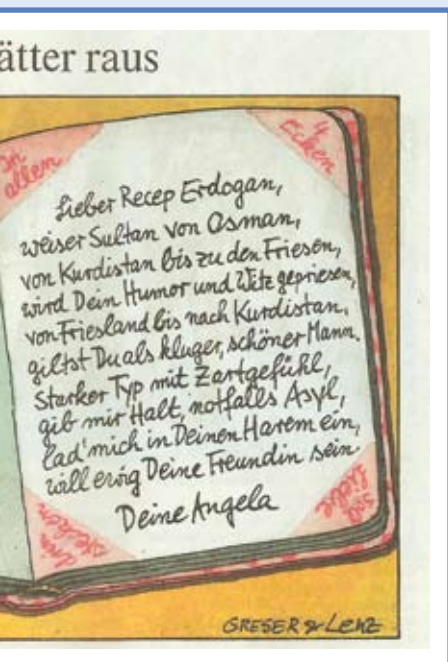 ätter raus
In
allen
4
Ecken
Lieber Recep Erdogan,
weiser Sultan von Osman,
von Kurdistan bis zu den Friesen,
wird Dein Humor und Witz gepriesen,
von Friesland bis nach Kurdistan,
giltst Du als kluger, schöner Mann.
Starker Typ mit Zartgefühl,
gib mir Halt, notfalls Asyl,
lad' mich in Deinen Harem ein,
will ewig Deine Freundin sein.
Deine Angela
soll
Liebe
drin
stecken
GRESER & LENZ